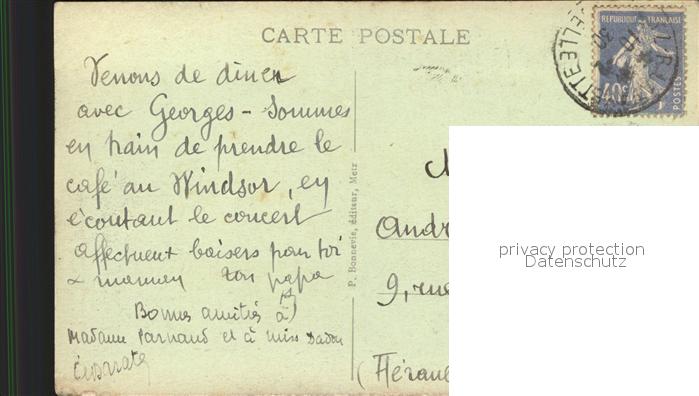 CARTE POSTALE
REPUBLIQUE FRANÇAISE
40c
POSTES
Venons de dîner
avec Georges - Sommes
en train de prendre le
café au Windsor, en
écoutant le concert
affectueux baisers pour toi
& maman ton papa
Bonnes amitiés à
Madame Parnaud et à miss
P. Bonnevie, éditeur, Metz
André
9, rue
(Hérau
privacy protection
Datenschutz